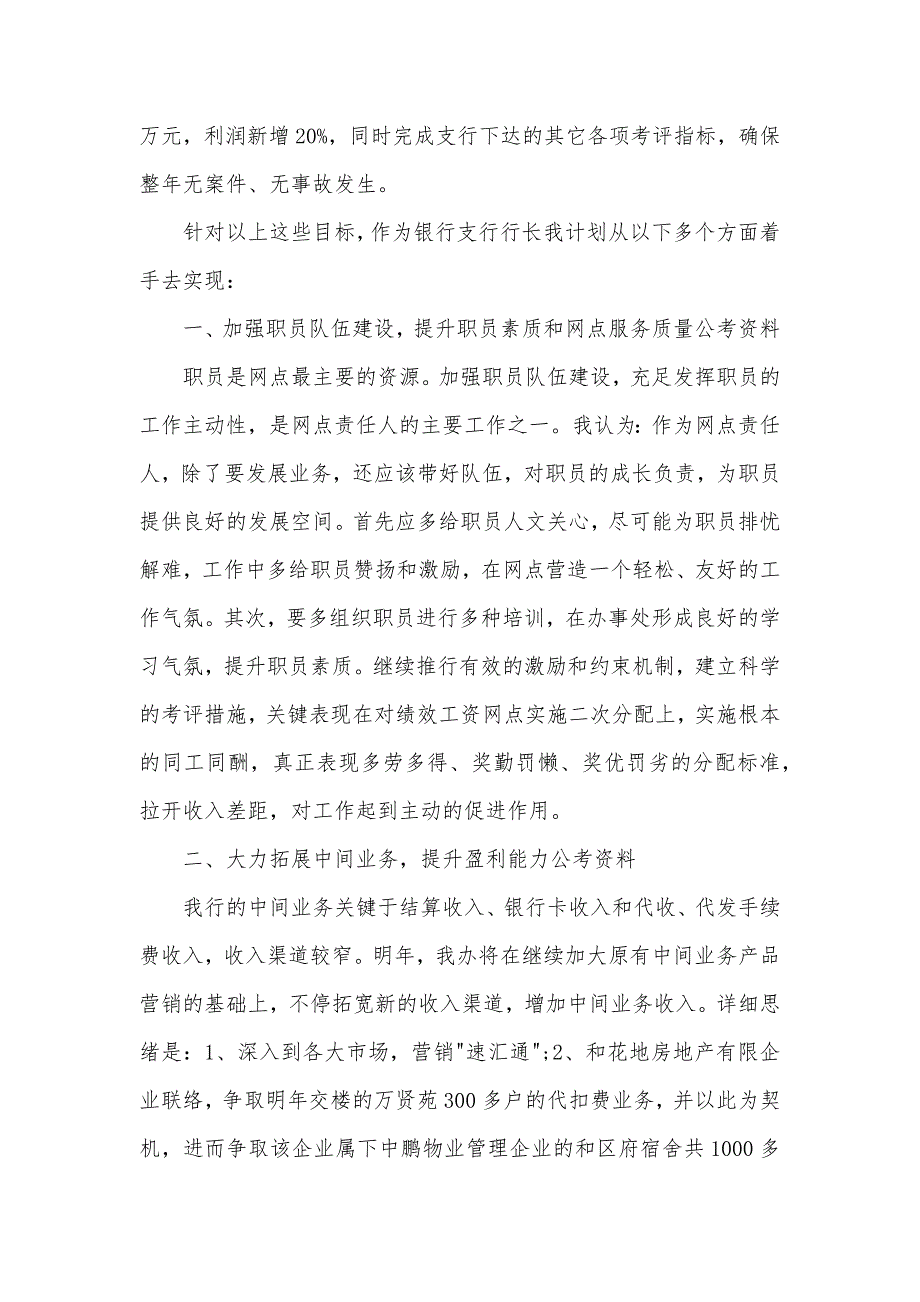 万元，利润新增20%，同时完成支行下达的其它各项考评指标，确保
整年无案件、无事故发生。
针对以上这些目标，作为银行支行行长我计划从以下多个方面着
手去实现：
一、加强职员队伍建设，提升职员素质和网点服务质量公考资料
职员是网点最主要的资源。加强职员队伍建设，充足发挥职员的
工作主动性，是网点责任人的主要工作之一。我认为：作为网点责任
人，除了要发展业务，还应该带好队伍，对职员的成长负责，为职员
提供良好的发展空间。首先应多给职员人文关心，尽可能为职员排忧
解难，工作中多给职员赞扬和激励，在网点营造一个轻松、友好的工
作气氛。其次，要多组织职员进行多种培训，在办事处形成良好的学
习气氛，提升职员素质。继续推行有效的激励和约束机制，建立科学
的考评措施，关键表现在对绩效工资网点实施二次分配上，实施根本
的同工同酬，真正表现多劳多得、奖勤罚懒、奖优罚劣的分配标准，
拉开收入差距，对工作起到主动的促进作用。
二、大力拓展中间业务，提升盈利能力公考资料
我行的中间业务关键于结算收入、银行卡收入和代收、代发手续
费收入，收入渠道较窄。明年，我办将在继续加大原有中间业务产品
营销的基础上，不停拓宽新的收入渠道，增加中间业务收入。详细思
绪是：1、深入到各大市场，营销"速汇通";2、和花地房地产有限企
业联络，争取明年交楼的万贤苑300多户的代扣费业务，并以此为契
机，进而争取该企业属下中鹏物业管理企业的和区府宿舍共1000多